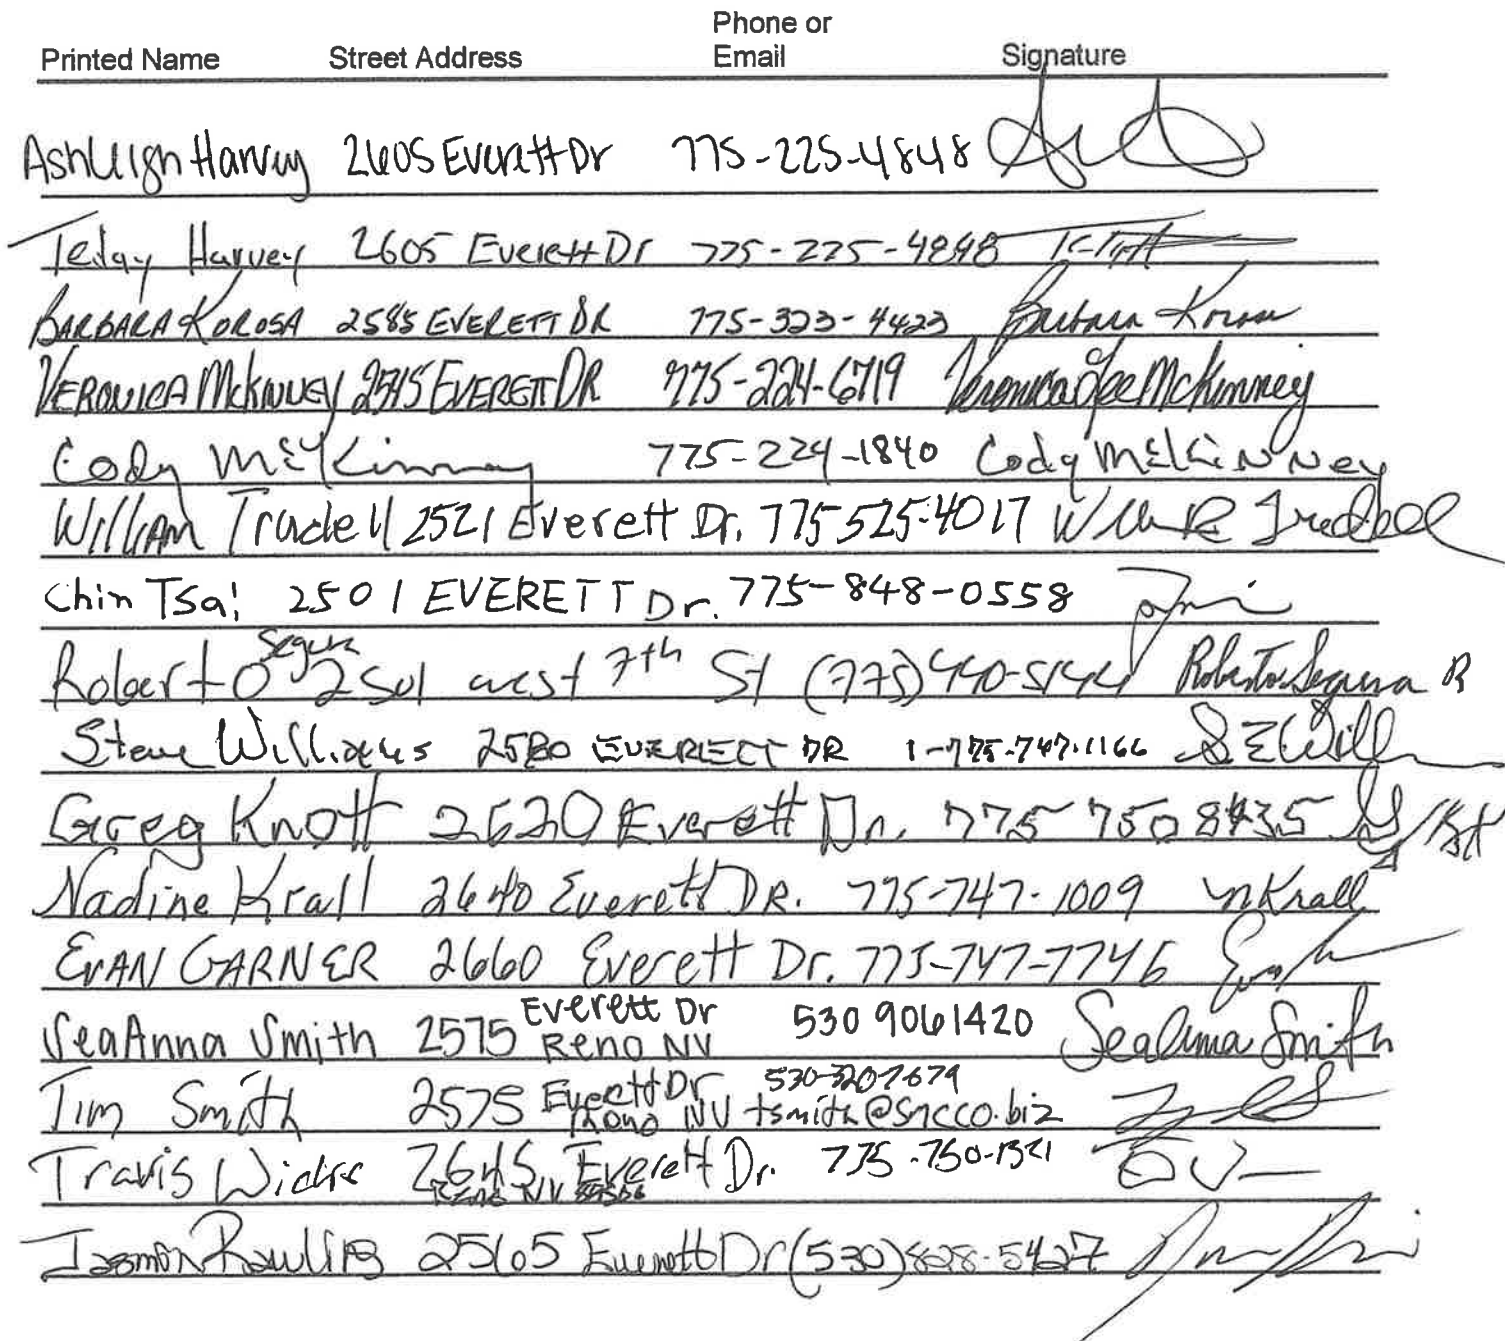 Printed Name Street Address Phone or Email Signature
Ashleigh Harvey 2605 Everett Dr 775-225-4848
Teddy Harvey 2605 Everett Dr 775-225-4848
BARBARA KOROSA 2585 EVERETT DR 775-323-4423 Barbara Korosa
VERONICA McKINNEY 2545 EVERETT DR 775-224-6719 Veronica Lee McKinney
Cody McKinney 775-224-1840 Cody McKinney
William Trudell 2521 Everett Dr. 775 525-4017
Chin Tsai 2501 EVERETT Dr. 775-848-0558
Roberto Segura 2501 west 7th St (775) 440-5144 Roberto Segura R
Steve Williams 2580 EVERETT DR 1-775-747-1166 S E Will
Greg Knott 2620 Everett Dr. 775 750 8435
Nadine Krall 2640 Everett DR. 775-747-1009 N Krall
EVAN GARNER 2660 Everett Dr. 775-747-7746
SeaAnna Smith 2575 Everett Dr Reno NV 530 9061420 SeaAnna Smith
Tim Smith 2575 Everett Dr Reno NV 530-320-7679 tsmith@smcco.biz
Travis Wicks 2645 Everett Dr. 775-750-1321
Reno NV
Rawlins 2565 Everett Dr (530) 828-5427